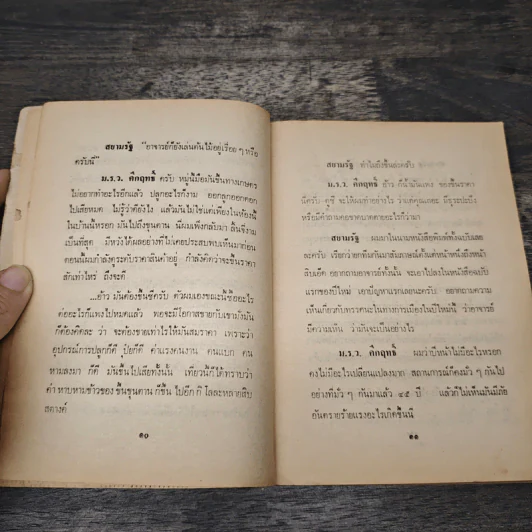 สยามรัฐ "อาจารย์ก็ยังเล่นต้นไม้อยู่เรื่อย ๆ หรือ
ครับนี่"
ม.ร.ว. คึกฤทธิ์ ครับ หมู่นี้มือมันขึ้นทางเกษตร
ไม่อยากทำอะไรอีกแล้ว ปลูกอะไรก็งาม ออกลูกออกดอก
ไปเสียหมด ไม่รู้ว่าดียังไง แล้วมันไม่ใช่แต่เพียงในห้องนี้
ในบ้านนี้หรอก มันไปถึงขุนตาน นี่ผมเพิ่งกลับมา ลิ้นจี่งาม
เป็นที่สุด มีหวังได้ผลอย่างที่ไม่เคยประสบพบเห็นมาก่อน
ตอนนี้ผมกำลังดูระดับราคาสินค้าอยู่ กำลังคิดว่าจะขึ้นราคา
สักเท่าไหร่ ถึงจะดี
...อ้าว มันต้องขึ้นซีครับ ตัวผมเองขณะนี้ซื้ออะไร
ต่ออะไรก็แพงไปหมดแล้ว พอจะมีโอกาสขายกับเขามั่งมัน
ก็ต้องคิดละ ว่า จะต้องขายเท่าไรให้มันสมราคา เพราะว่า
อุปกรณ์การปลูกก็ดี ปุ๋ยก็ดี ค่าแรงคนงาน คนแบก คน
หามลงมา ก็ดี มันขึ้นไปเสียทั้งนั้น เที่ยวนี้ก็ได้ทราบว่า
ค่าหาบหามข้าวของ ขึ้นขุนตาน ก็ขึ้น ไปอีก กิโลละหลายสิบ
สตางค์
๑๐
สยามรัฐ ทำไมถึงขึ้นล่ะครับ
ม.ร.ว. คึกฤทธิ์ อ้าว ก็น้ำมันแพง ของขึ้นราคา
นี่ครับ คุณ จะให้ผมทำอย่างไร ว่าแต่คุณเถอะ มีธุระปะปัง
หรือมีคำถามคอขาดบาดตายอะไรก็ว่ามา
สยามรัฐ ผมมาในนามหนังสือพิมพ์ทั้งฉบับเลย
ละครับ เรียกว่ายกทัพกันมาสัมภาษณ์ตั้งแต่หน้าหนึ่งถึงหน้า
สิบเอ็ด อยากถามอาจารย์ทั้งนั้น จะเอาไปลงในหนังสือฉบับ
แรกของปีใหม่ เอาปัญหาแรกเลยนะครับ อยากถามความ
เห็นเกี่ยวกับทรรศนะในทางการเมืองในปีใหม่นี้ ว่าอาจารย์
มีความเห็น ว่ามันจะเป็นอย่างไร
ม.ร.ว. คึกฤทธิ์ ผมว่าปีหน้าไม่มีอะไรหรอก
คงไม่มีอะไรเปลี่ยนแปลงมาก สถานการณ์ก็คงมัว ๆ กันไป
อย่างที่มัว ๆ กันมาแล้ว ๔๕ ปี แล้วก็ไม่เห็นมันมีภัย
อันตรายร้ายแรงอะไรเกิดขึ้นนี่
๑๑